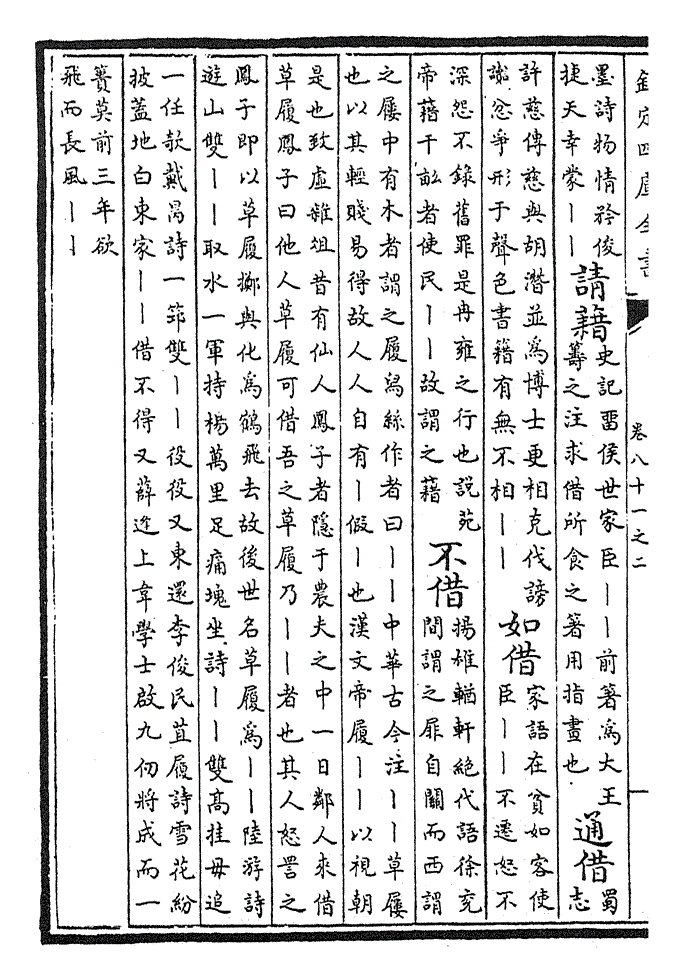 欽定四庫全書
卷八十一之二
墨詩物情矜俊
捷天幸蒙丨丨
請藉
史記留侯世家臣丨丨前箸為大王
籌之注求借所食之箸用指畫也
通借
蜀
志
許慈傳慈與胡潛並為博士更相克伐謗
讟忿爭形于聲色書籍有無不相丨丨
如借
家語在貧如客使
臣丨丨不遷怒不
深怨不錄舊罪是冉雍之行也說苑
帝藉千畝者使民丨丨故謂之藉
不借
揚雄輶軒絕代語徐兖
間謂之屝自關而西謂
之屨中有木者謂之履舄絲作者曰丨丨中華古今注丨丨草屨
也以其輕賤易得故人人自有丨假丨也漢文帝履丨丨以視朝
是也致虛雜俎昔有仙人鳳子者隱于農夫之中一日鄰人來借
草履鳳子曰他人草履可借吾之草履乃丨丨者也其人怒詈之
鳳子即以草履擲與化為鶴飛去故後世名草履為丨丨陸游詩
遊山雙丨丨取水一軍持楊萬里足痛塊坐詩丨丨雙髙挂毋追
一任欹戴昺詩一笻雙丨丨役役又東還李俊民苴履詩雪花紛
披蓋地白東家丨丨借不得又薛逢上韋學士啟九仞將成而一
簣莫前三年欲
飛而長風丨丨